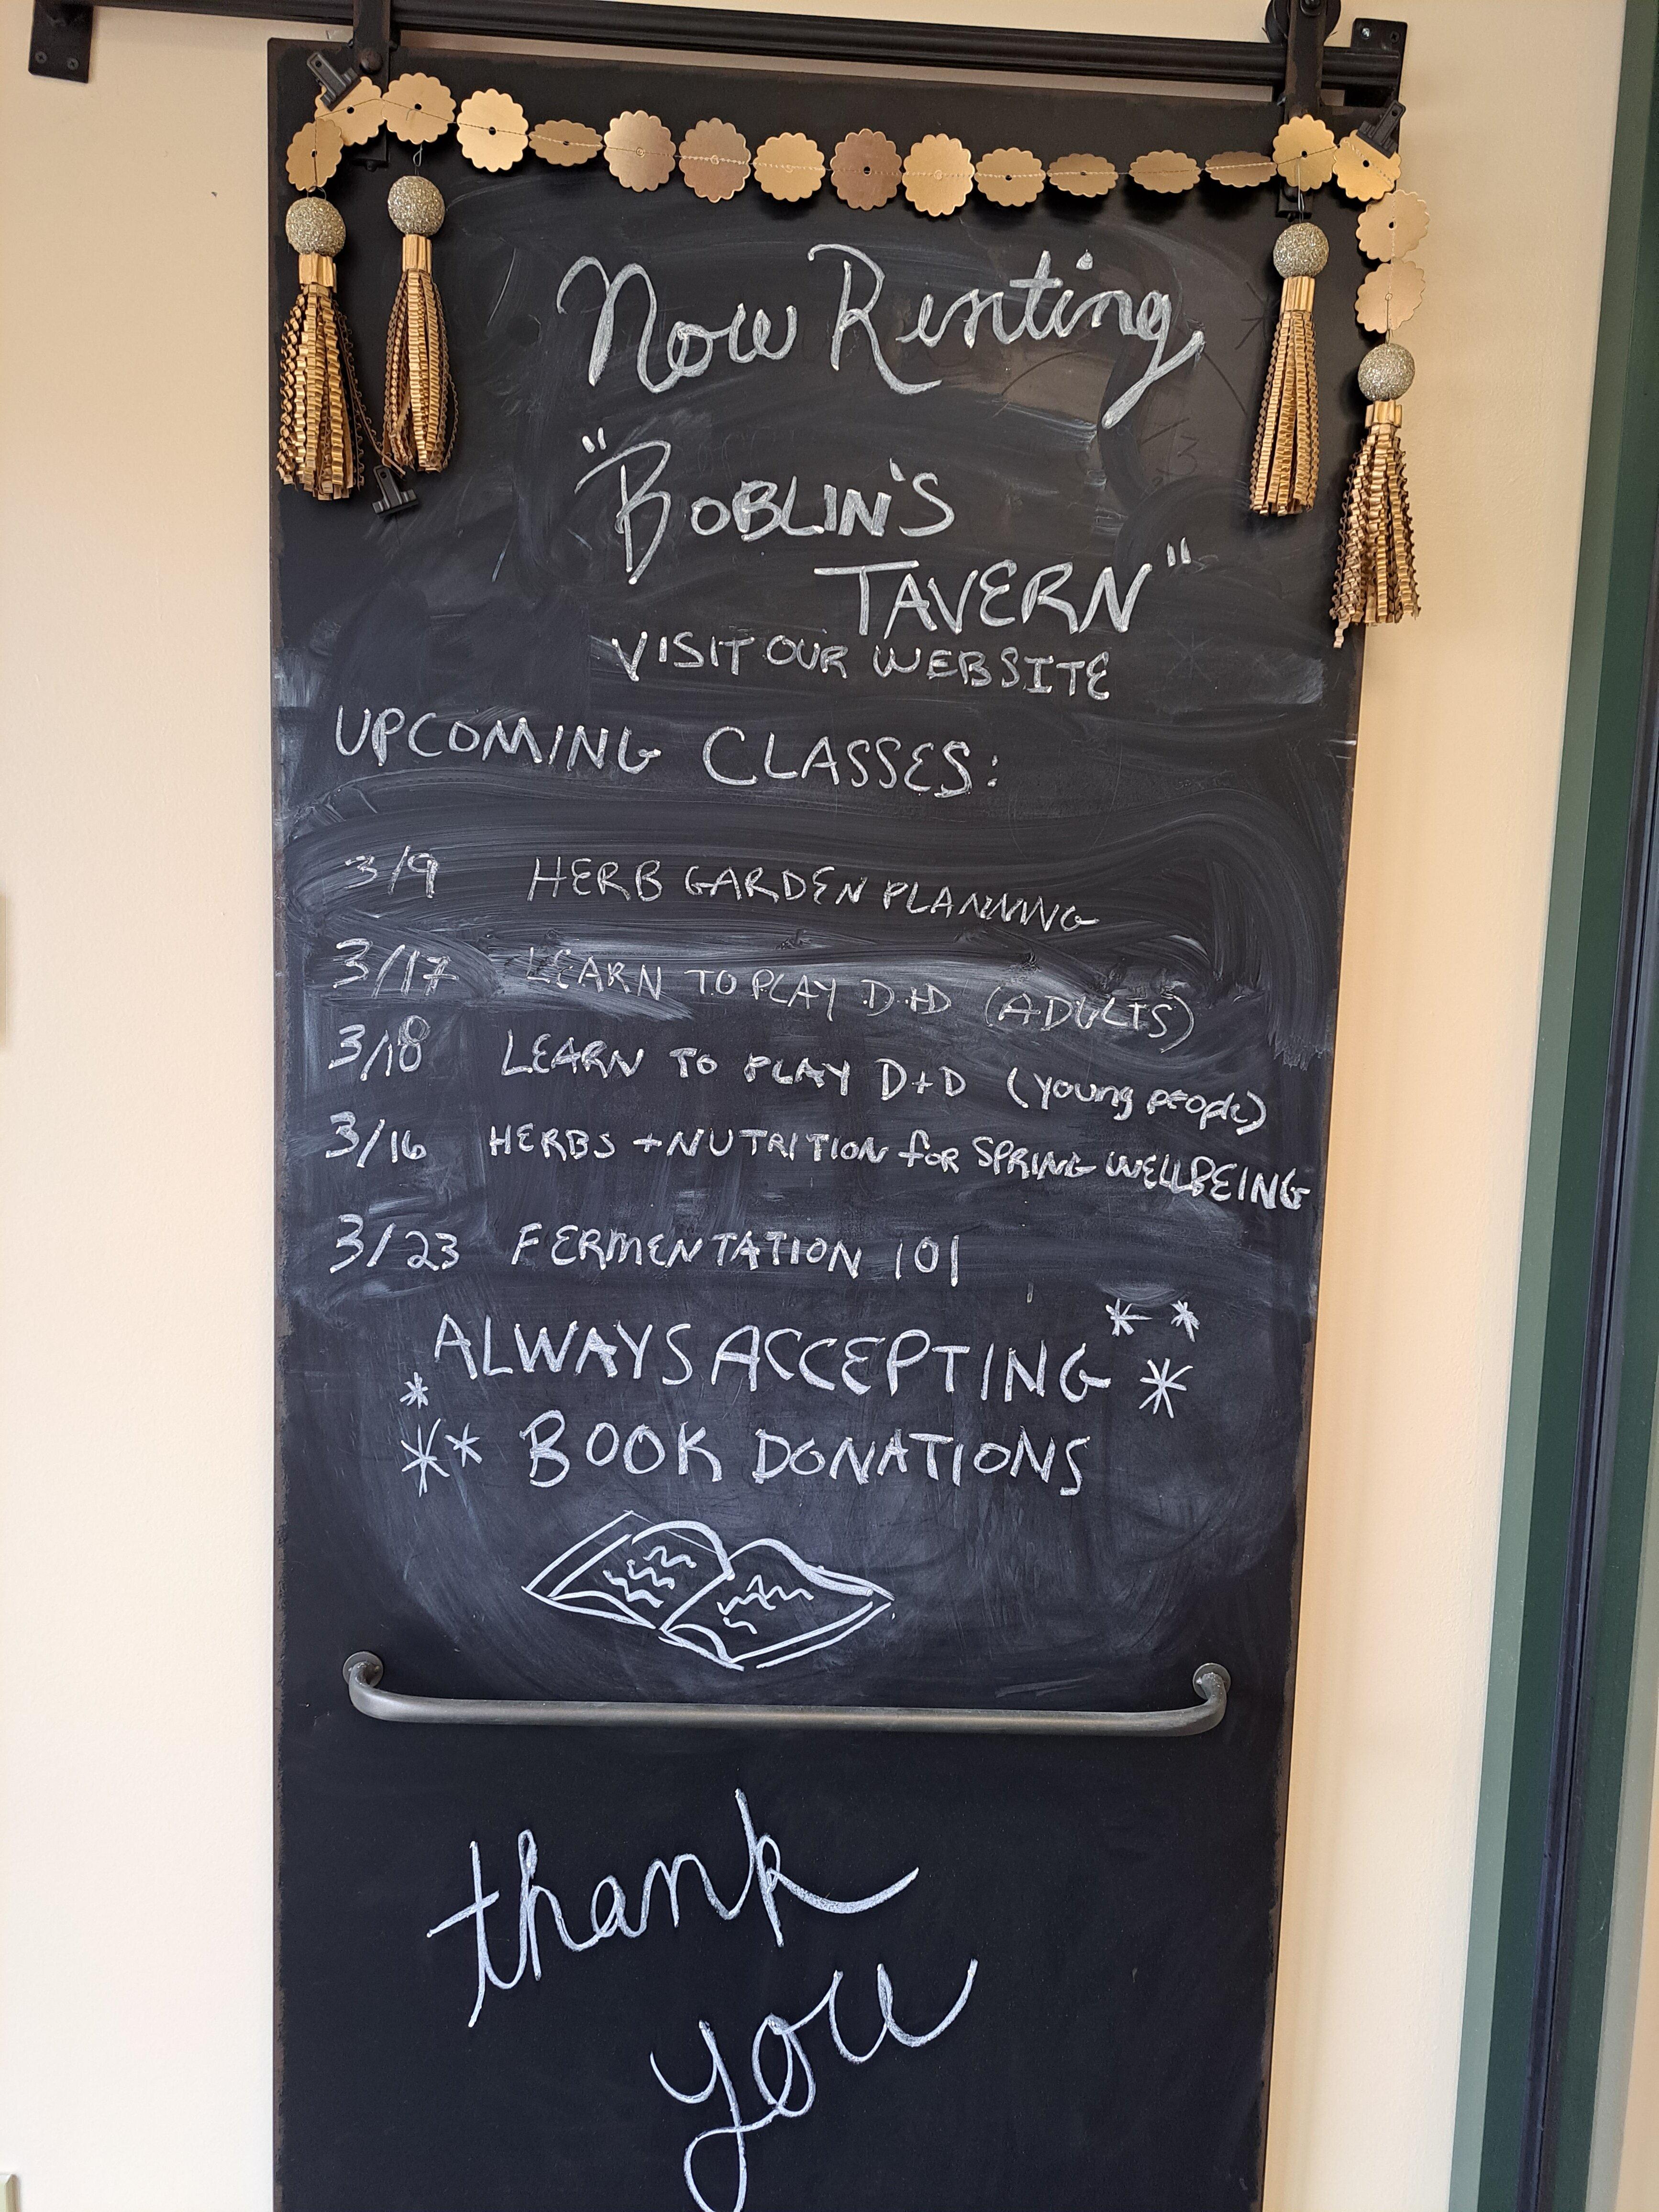 Now Renting
"BOBLIN'S
TAVERN"
VISIT OUR WEBSITE
UPCOMING CLASSES:
3/9 HERB GARDEN PLANNING
3/17 LEARN TO PLAY D+D (ADULTS)
3/18 LEARN TO PLAY D+D (young people)
3/16 HERBS + NUTRITION for SPRING WELLBEING
3/23 FERMENTATION 101
ALWAYS ACCEPTING
BOOK DONATIONS
thank
you